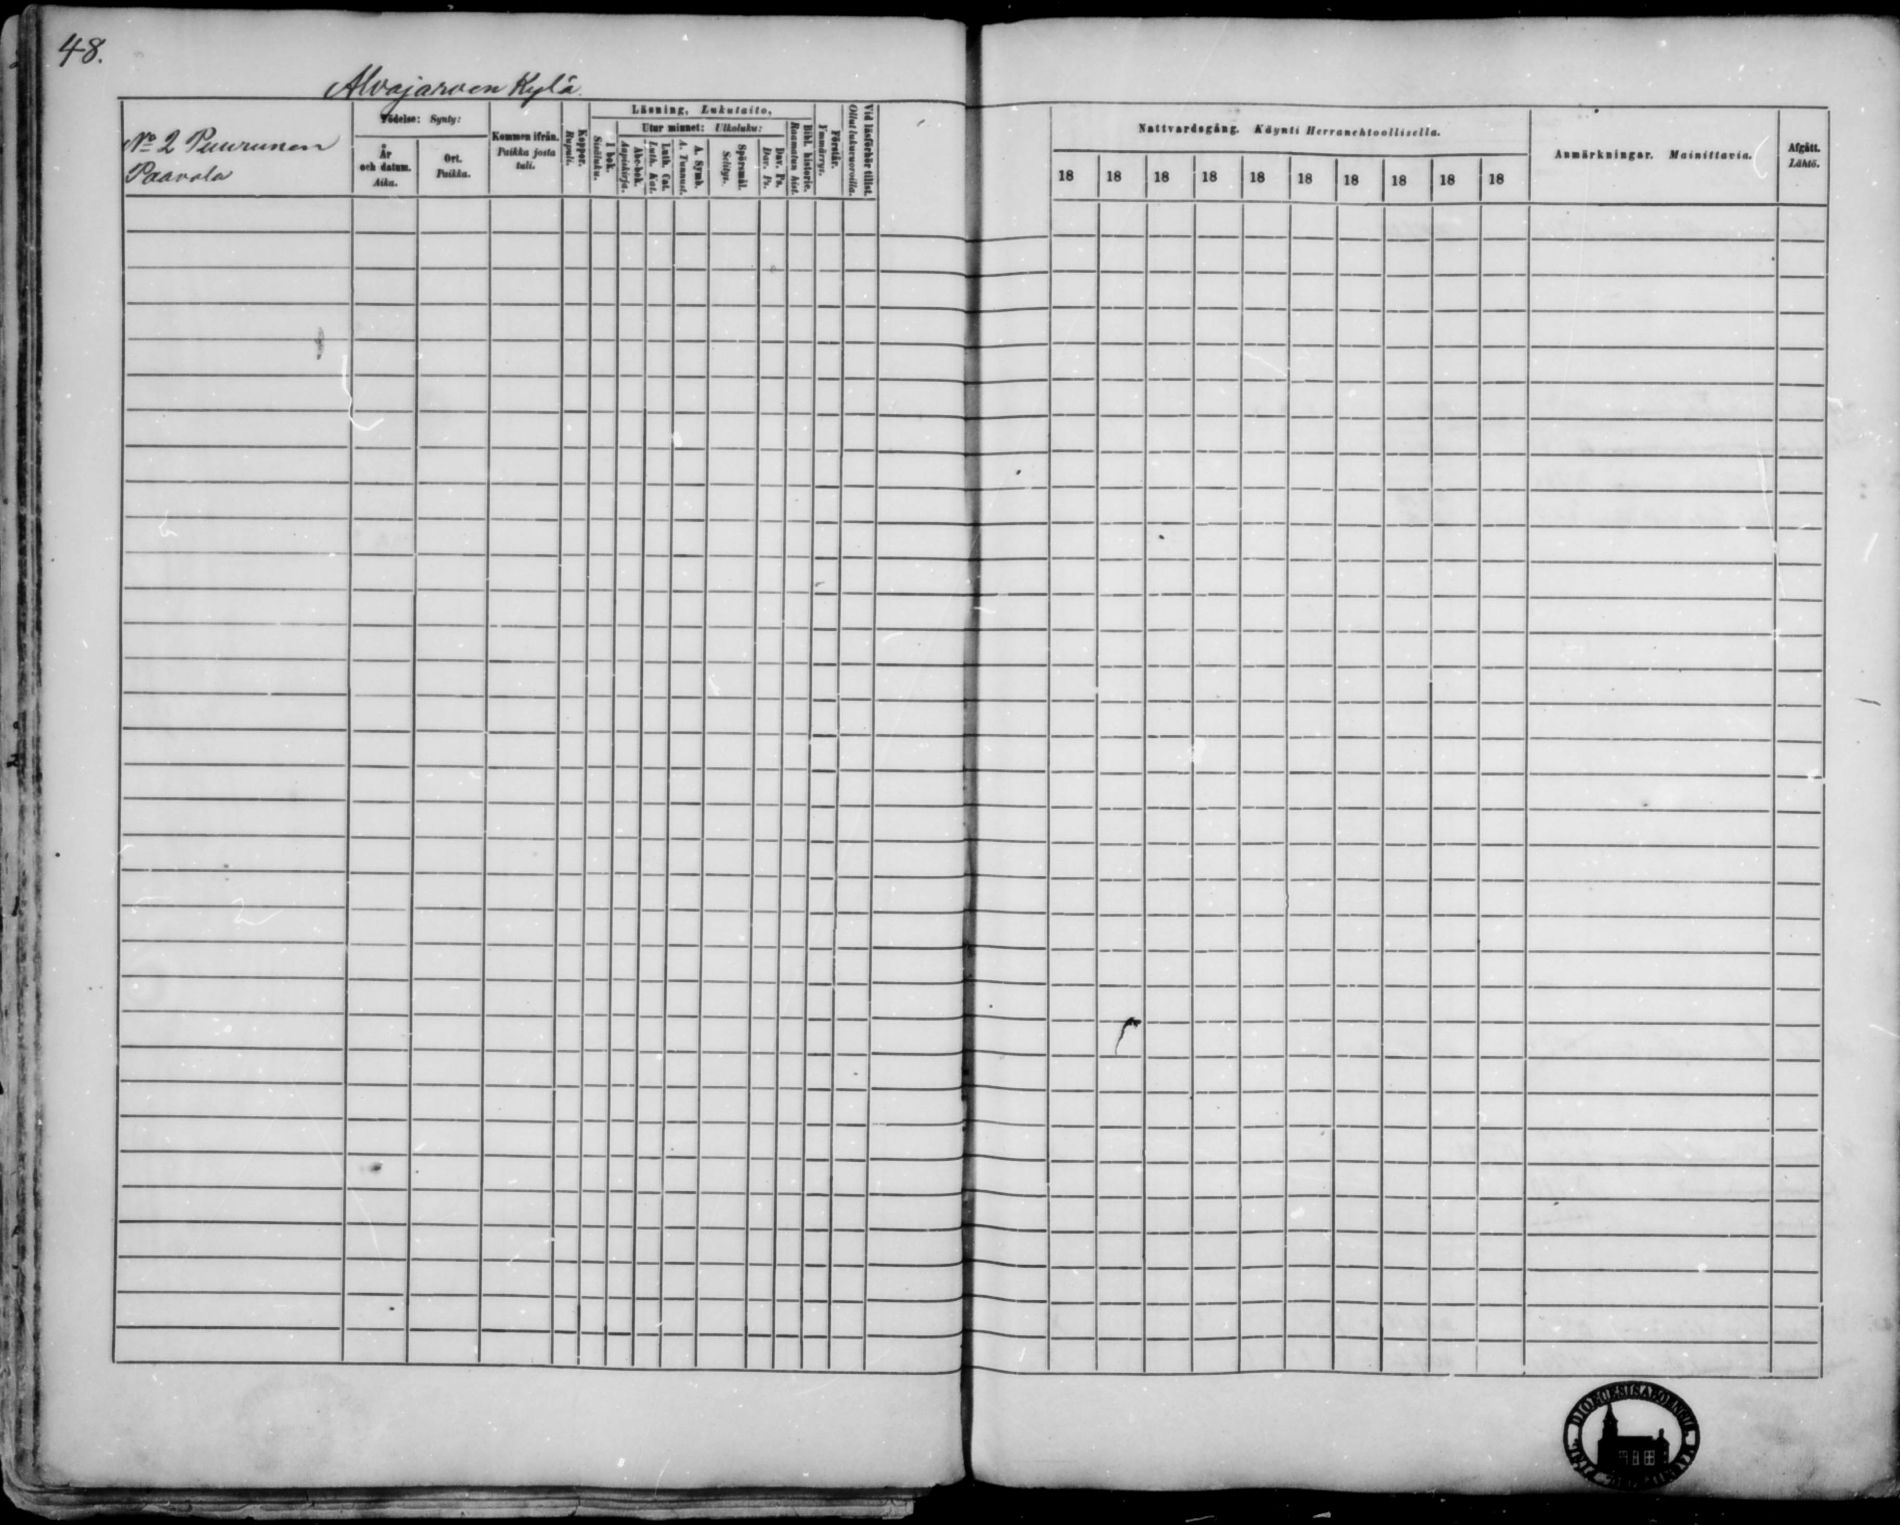 48.
Alvajarven Kylä.
No 2 Puurunen
Paavola
Födelse: Synty:
År
och datum.
Aika.
Ort.
Paikka.
Kommen ifrån.
Paikka josta
tuli.
Koppor.
Rupuli.
Läsning, Lukutaito,
I bok.
Sisäluku.
Utur minnet: Ulkoluku:
Abc-bok.
Aapiskirja.
Luth. Cat.
Luth. Kat.
A. Symb.
A. Tunnust.
Spörsmål.
Selitys.
Dav. Ps.
Dav. Ps.
Bibl. historie.
Raamatun hist.
Förstår.
Ymmärrys.
Vid läsförhör tillst.
Ollut lukuvuoroilla.
Nattvardsgång. Käynti Herranehtoollisella.
18 18 18 18 18 18 18 18 18 18
Anmärkningar. Mainittavia.
Afgått.
Lähtö.
DIOECESIS ABOENSIS